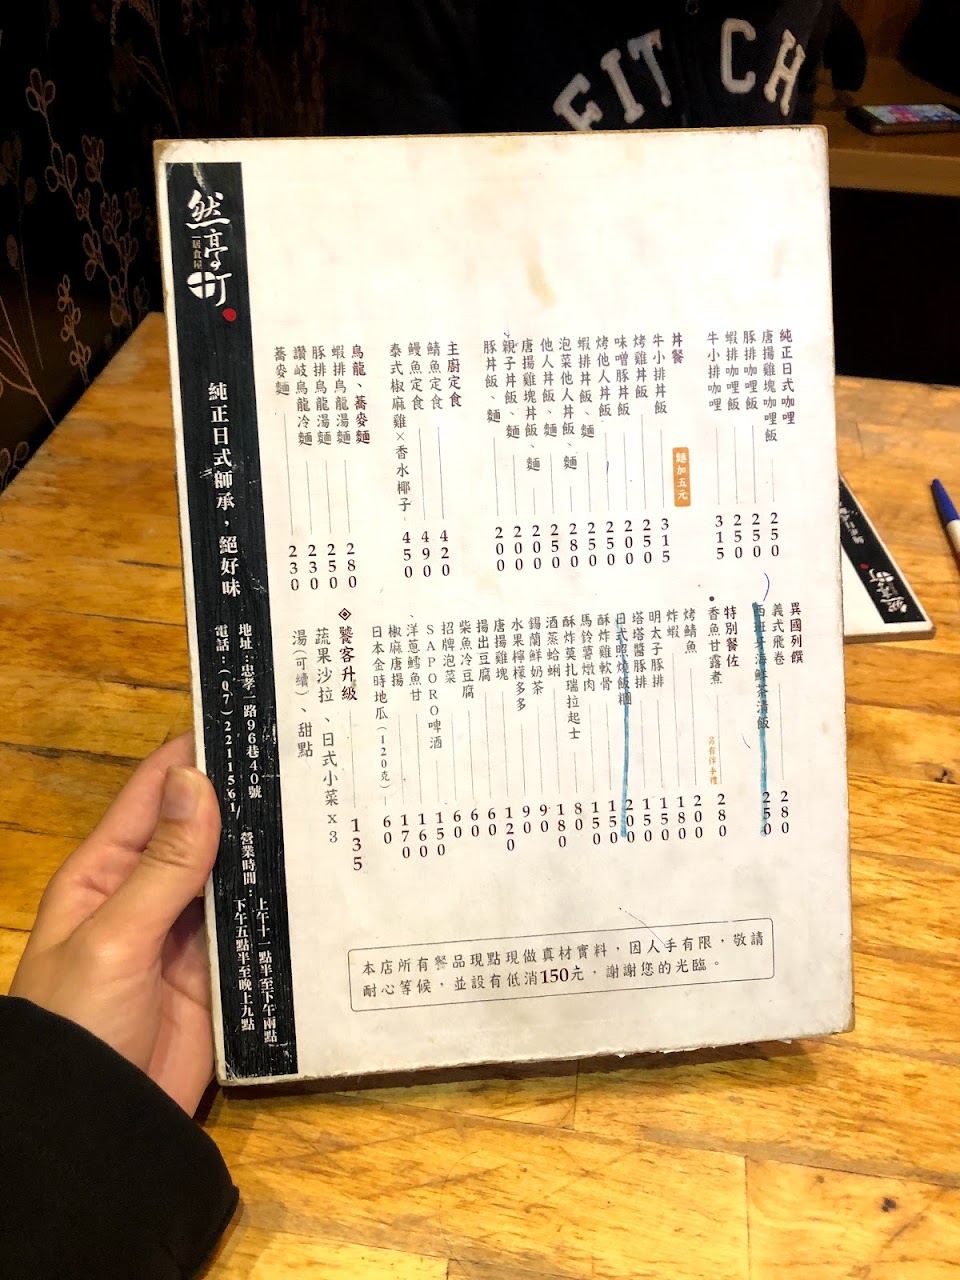 FITCH
純正日式咖哩
唐揚雞塊咖哩飯 250
豚排咖哩飯 250
蝦排咖哩飯 250
牛小排咖哩 315
丼餐
麵加五元
牛小排丼飯 315
烤雞丼飯 200
味噌豚丼飯 200
烤他人丼飯 250
蝦排丼飯、麵 250
泡菜他人丼飯、麵 280
他人丼飯、麵 250
唐揚雞塊丼飯、麵 200
親子丼飯、麵 200
豚丼飯、麵 200
主廚定食
鯖魚定食 420
鰻魚定食 490
泰式椒麻雞×香水椰子 450
烏龍、蕎麥麵
蝦排烏龍湯麵 280
豚排烏龍湯麵 250
讚岐烏龍冷麵 230
蕎麥麵 230
異國列饌
義式飛卷 280
西班牙海鮮茶漬飯 250
特別餐佐
香魚甘露煮 280
另有伴手禮
烤鯖魚 200
炸蝦 180
明太子豚排 150
塔塔醬豚排 150
日式照燒飯糰 200
酥炸雞軟骨 150
馬鈴薯燉肉 150
酥炸莫扎瑞拉起士 180
酒蒸蛤蜊 180
錫蘭鮮奶茶 90
水果檸檬多多 90
唐揚雞塊 120
揚出豆腐 60
柴魚冷豆腐 60
招牌泡菜 60
SAPORO啤酒 150
洋蔥鱈魚甘 160
椒麻唐揚 170
日本金時地瓜(120克) 60
饕客升級 135
蔬果沙拉、日式小菜x3
湯(可續)、甜點
本店所有餐品現點現做真材實料，因人手有限，敬請
耐心等候，並設有低消150元，謝謝您的光臨。
然亭町
居食屋
純正日式師承，絕好味
地址：忠孝一路96巷40號
電話：(07)2211561/
營業時間：
上午十一點半至下午兩點
下午五點半至晚上九點